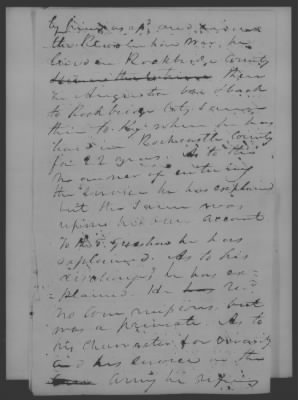 the Revo
lived in Rockbridge County
then
in Augusta Va & back
to Rockbridge Cty &
then to Ky where he has
lived in Rockcastle County
for 22 years. As to the
manner of entering
the service he has explained
but the same was
upon his own account
To the 5. question he has
explained. As to his
discharge he has ex-
plained. He has re.d
no commissions but
was a private. As to
his character for veracity
and his service in the
army he refers